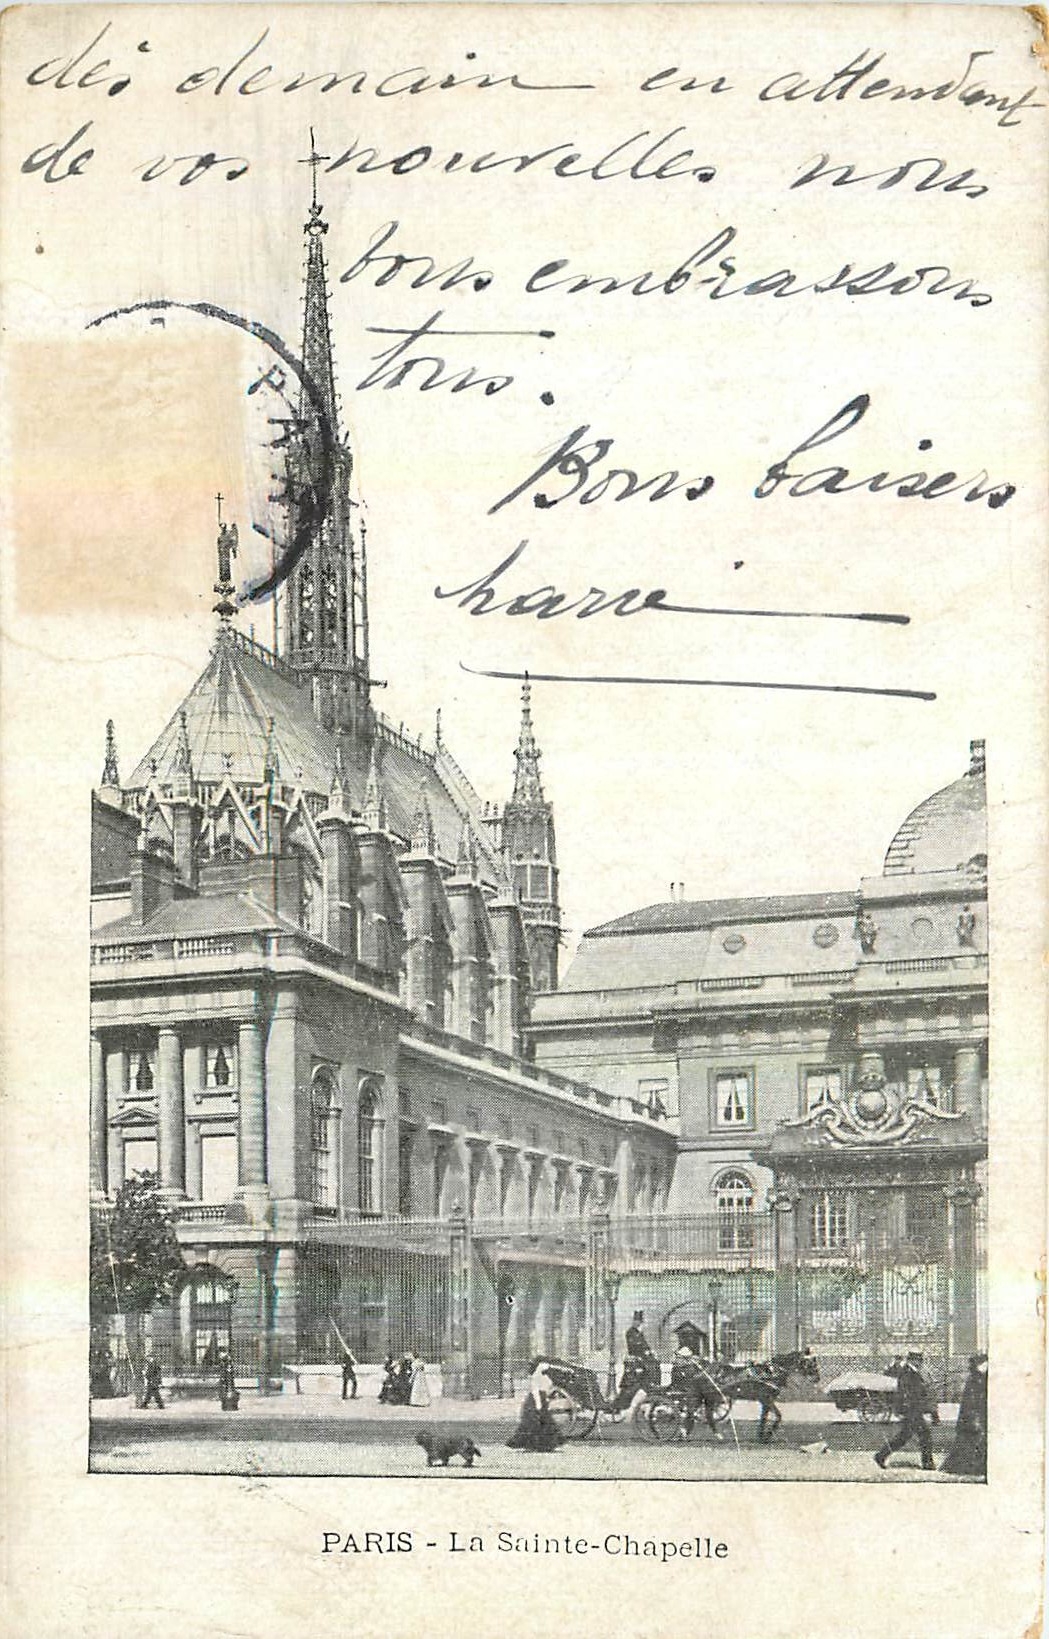 dès demain en attendant
de vos nouvelles nous
vous embrassons
tous.
Bons baisers
Marie
PARI
PARIS - La Sainte-Chapelle